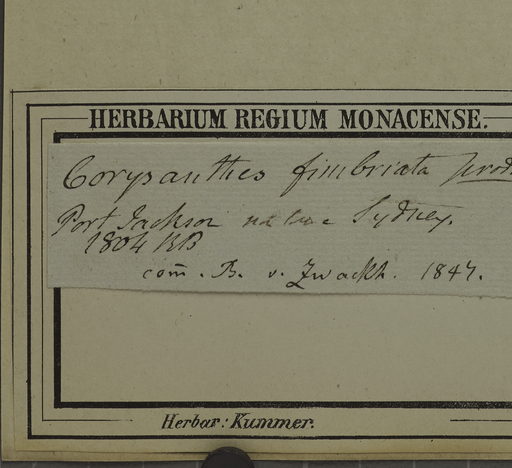 HERBARIUM REGIUM MONACENSE.
Corysanthes fimbriata prod
Port Jackson Sydney.
1804 RB
com̄. B. v. Zwackh. 1847.
Herbar: Kummer.